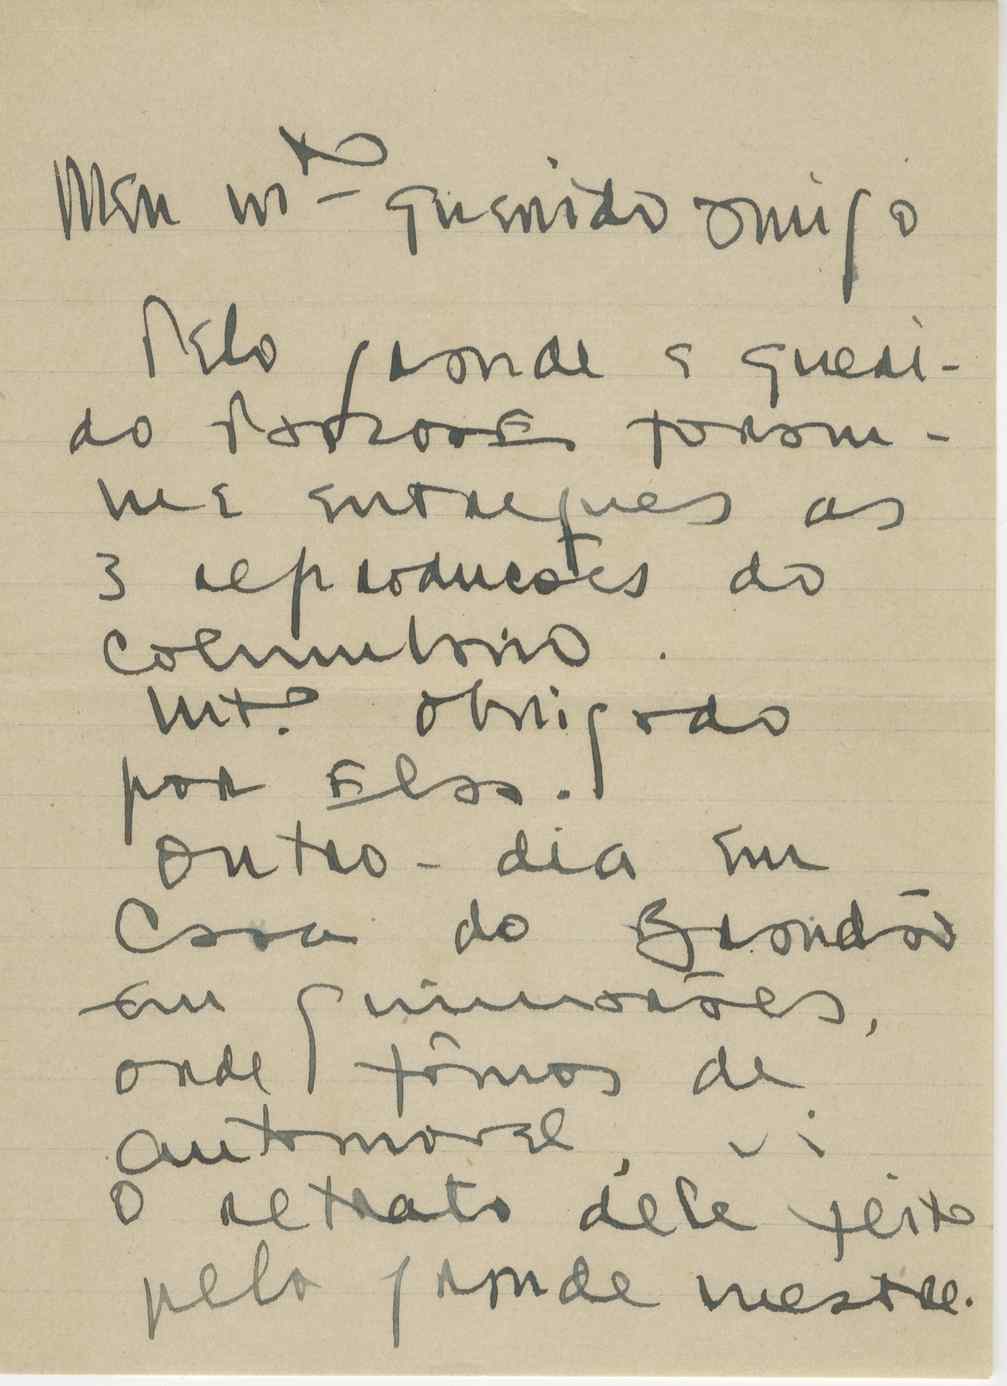 Meu mto querido amigo
Pelo grande e queri-
do Pascoaes foram-
me entregues as
3 reproducções do
columbano.
Mto. obrigado
por Elas.
outro-dia em
Casa do Brandão
em guimarães,
onde fômos de
automovel, vi
o retrato dele feito
pelo grande mestre.